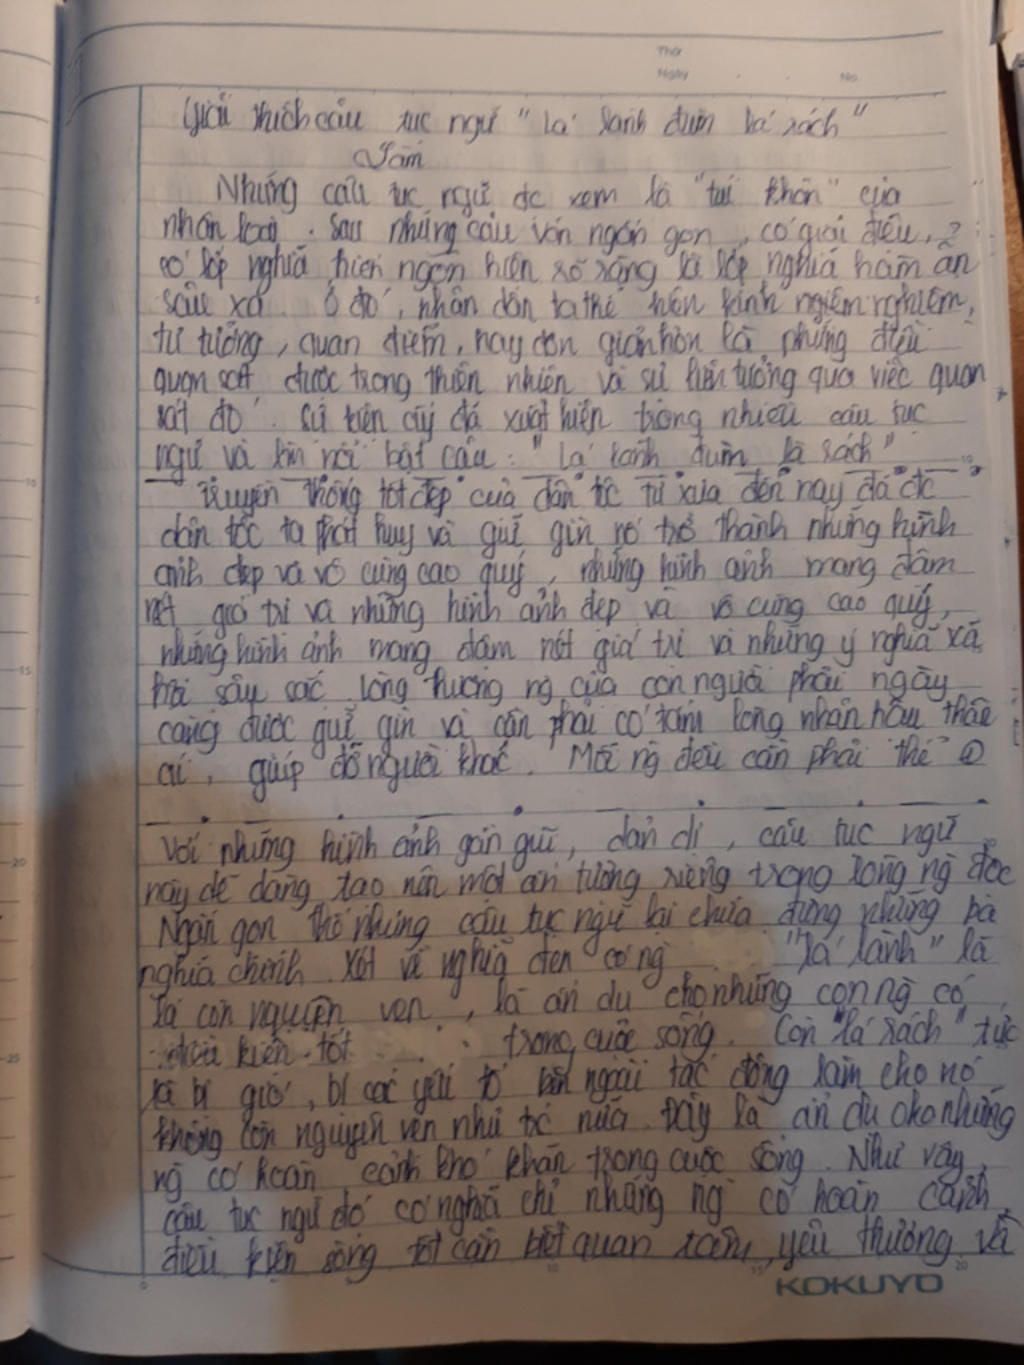 Thứ
Ngày No.
Giải thích câu tục ngữ "lá lành đùm lá rách"
Làm
Những câu tục ngữ đc xem là "túi khôn" của
nhân loại. Sau những câu văn ngắn gọn, có giai điệu,
có lớp nghĩa hiển ngôn hiện rõ ràng là lớp nghĩa hàm ẩn
sâu xa. Ở đó, nhân dân ta thể hiện kinh ngiệm nghiệm,
tư tưởng, quan điểm, hay đơn giản hơn là những điều
quan sát được trong thiên nhiên và sự liên tưởng qua việc quan
sát đó. Sự kiện ấy đã xuất hiện trong nhiều câu tục
ngữ và nổi bật câu: "Lá lành đùm lá rách"
Truyền thống tốt đẹp của dân tộc từ xưa đến nay đã đc
dân tộc ta phát huy và giữ gìn nó trở thành những hình
ảnh đẹp và vô cùng cao quý, những hình ảnh mang đậm
nét giá trị và những hình ảnh đẹp và vô cùng cao quý,
những hình ảnh mang đậm nét giá trị và những ý nghĩa xã
hội sâu sắc. Lòng thương ng của con người phải ngày
càng được giữ gìn và cần phải có tấm lòng nhân hậu thân
ái, giúp đỡ người khác. Mỗi ng đều cần phải thế
Với những hình ảnh gần gũi, dản dị, câu tục ngữ
này dễ dàng tạo nên một ấn tượng riêng trong lòng ng đọc
Ngắn gọn thế nhưng câu tục ngữ lại chứa đựng những
nghĩa chính. Xét về nghĩa đen có ng "lá lành" là
lá còn nguyên vẹn, là ẩn dụ cho những con ng có
điều kiện tốt trong cuộc sống. Còn "lá rách" tức
là bị gió, bị các yếu tố bên ngoài tác động làm cho nó
không còn nguyên vẹn như trc nữa. Đây là ẩn dụ cho những
ng có hoàn cảnh khó khăn trong cuộc sống. Như vậy,
câu tục ngữ đó có nghĩa chỉ những ng có hoàn cảnh,
điều kiện sống tốt cần biết quan tâm, yêu thương và
KOKUYO